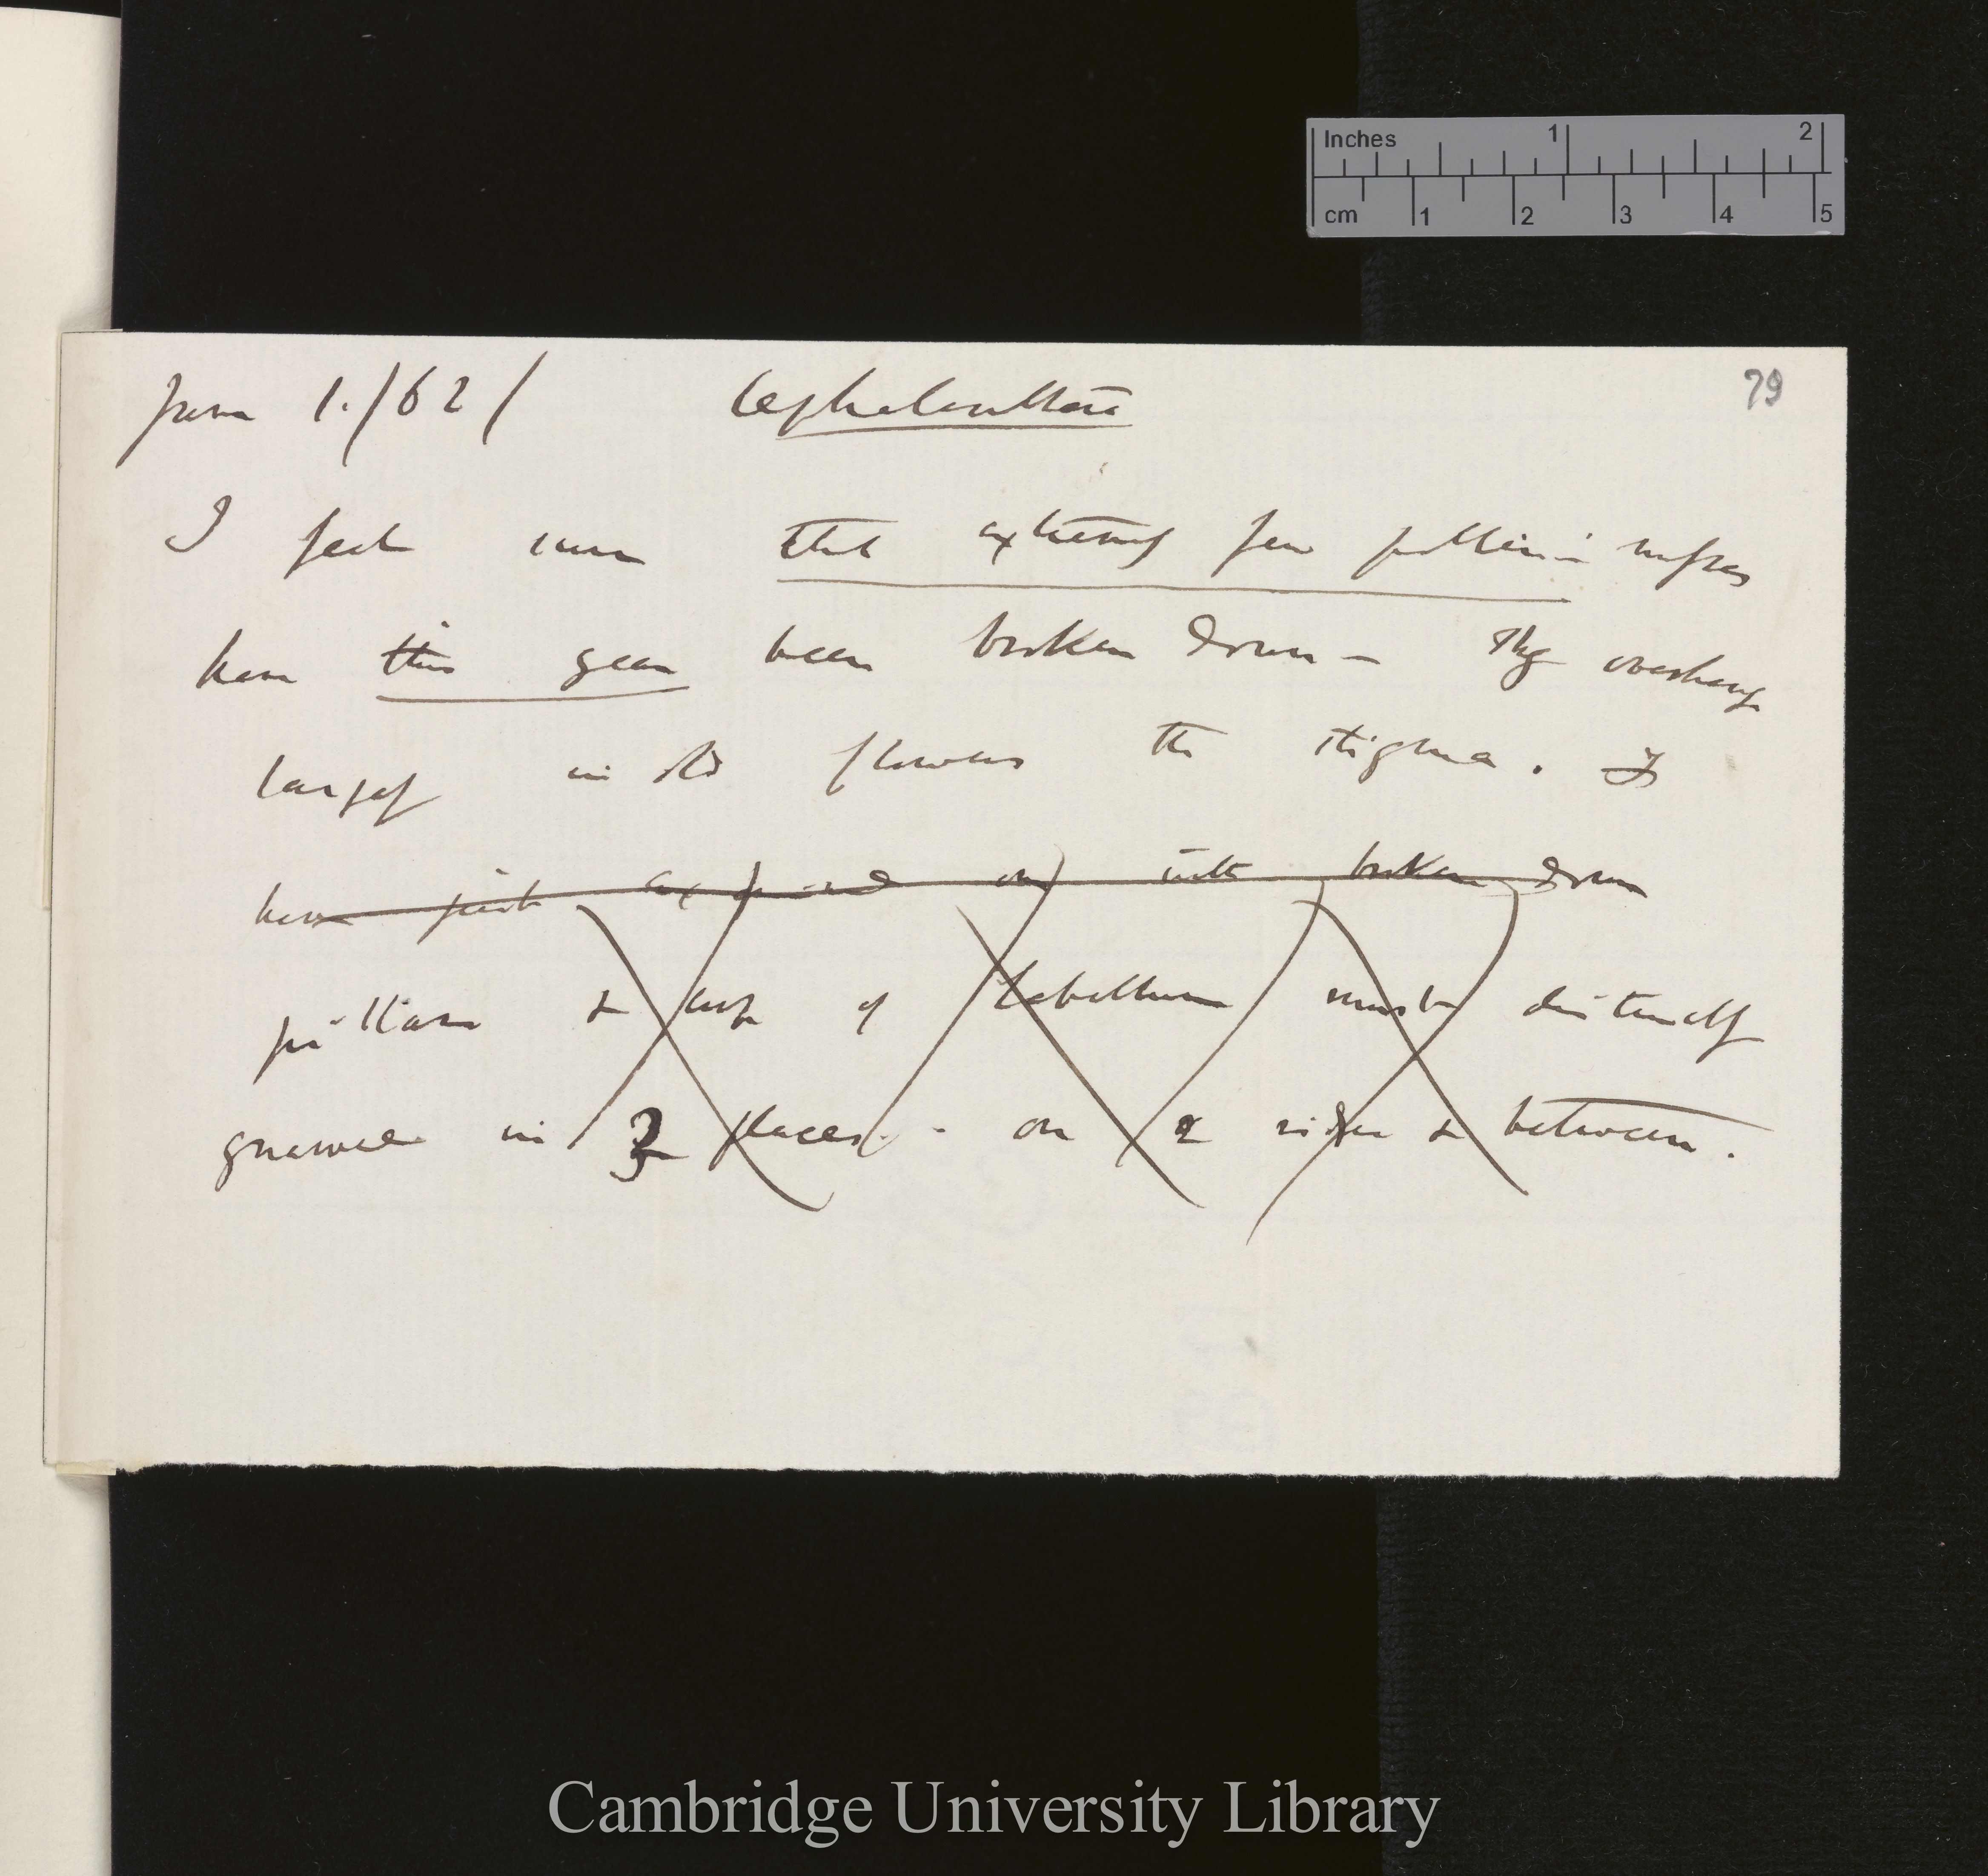 Inches 1 2
cm 1 2 3 4 5
June 1./62/ Cephalanthera 79
I feel sure that extremely few pollinia masses
have this year been broken down — They overhang
largely in old flowers the stigma. I
have just examined one with broken down
pillars & cup of Labellum must distinctly
gnawed in 3 places — on 2 sides & between.
Cambridge University Library